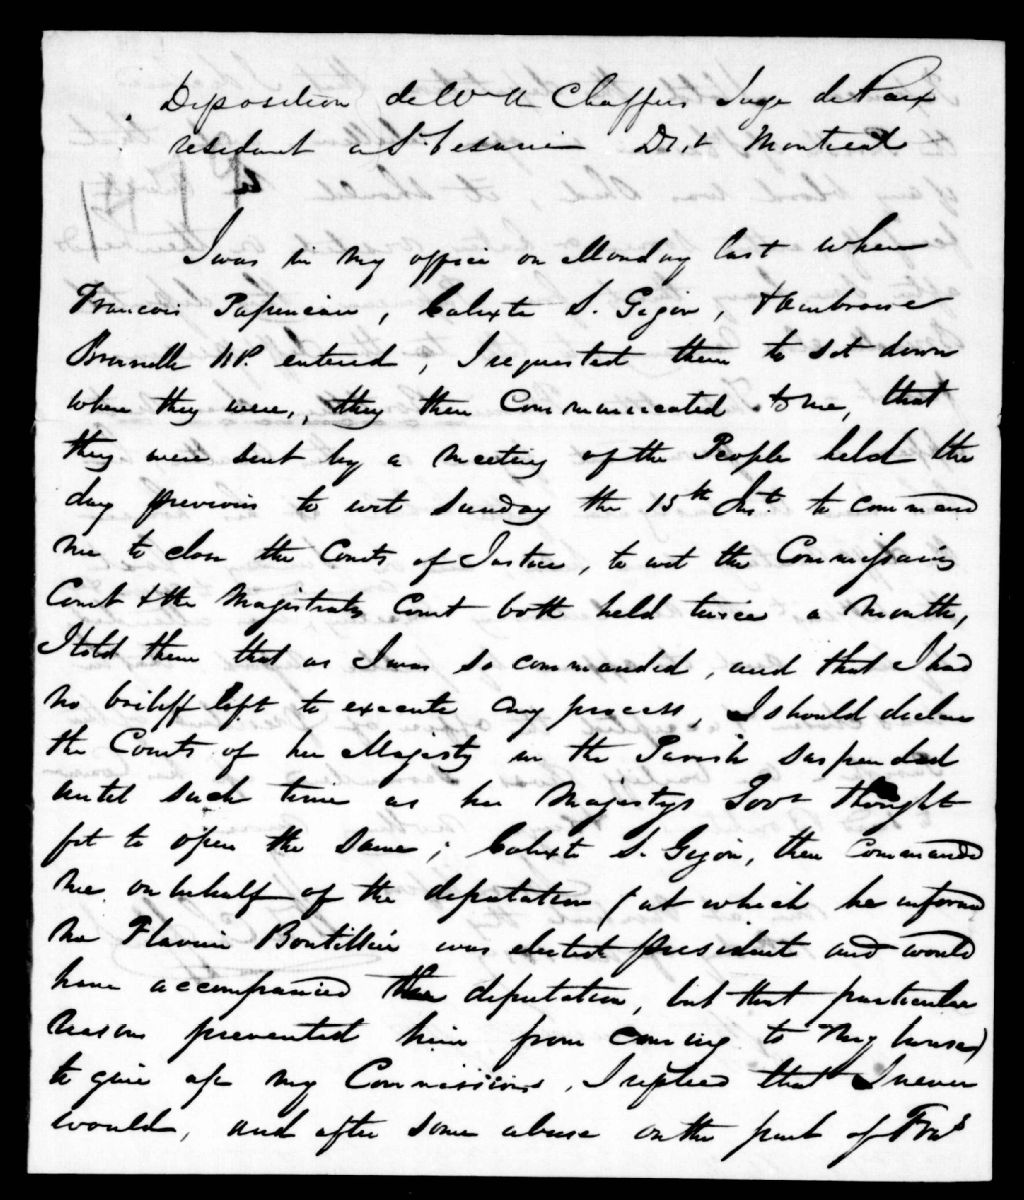 Deposition de Wm U Chaffers Juge de Paix
resident a St Cesaire Dist Montreal
4
I was in my office on Monday last when
Francois Papineau, Calixte S. Gigon, & Ambroise
Brunelle NP. entered, I requested them to set down
where they were, they then Communicated to me, that
they were sent by a meeting of the People held the
day previous to wit Sunday the 15th Inst. to command
me to close the Courts of Justice, to wit the Commissaries
Court & the Magistrates Court both held twice a Month,
I told them that as I was so commanded, and that I had
no bailiff left to execute any process, I should declare
the Courts of her Majesty in the Parish suspended
until such time as her Majestys Govt thought
fit to open the Same; Calixte S. Gigon, then commanded
me on behalf of the deputation (at which he informed
me Flavien Boutillier was elected president and would
have accompanied the deputation, but that particular
reasons prevented him from coming to my house)
to give up my Commissions, I replied that I never
would, and after some abuse on the part of Frs